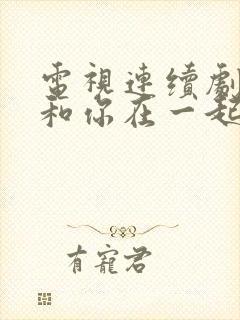 電視連續劇
和你在一起
有寵君